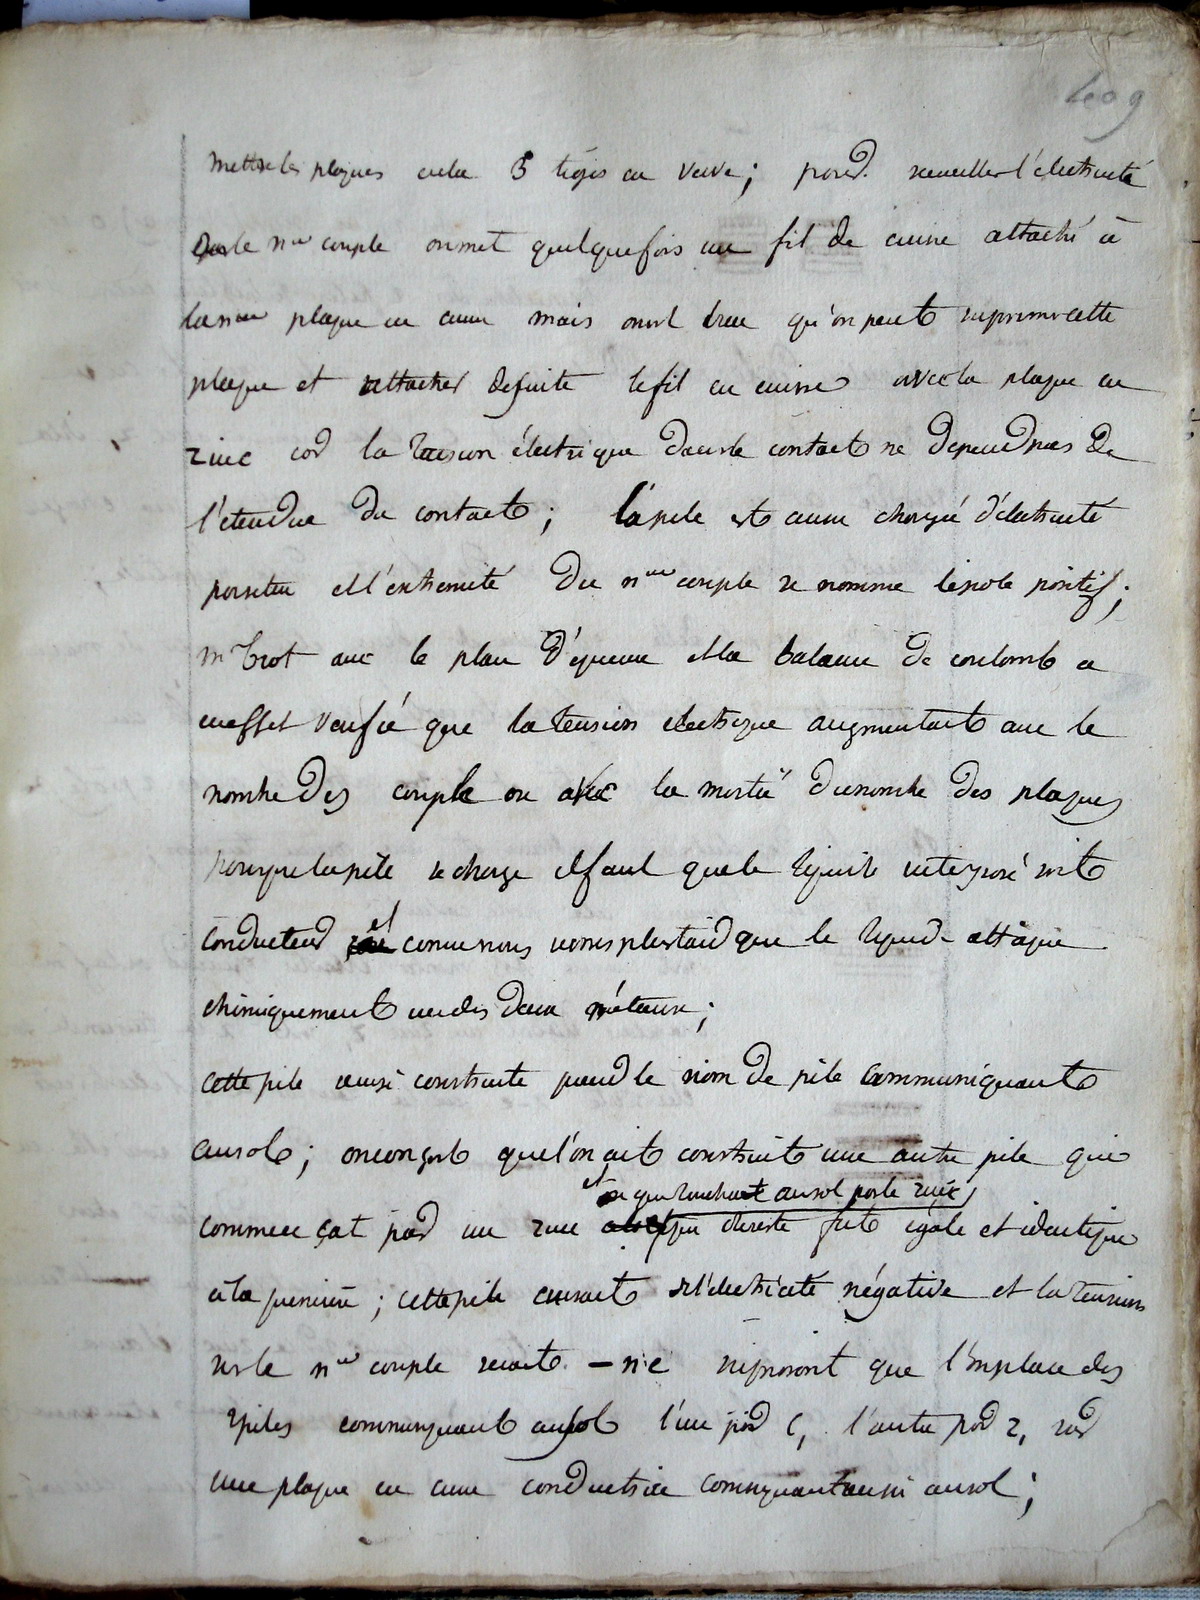 409
mettre les plaques entre 3 tiges en verre; pour recueiller l'électricité
sur le nme couple on met quelquefois un fil de cuivre attaché à
la nme plaque en cuivre mais on voit bien qu'on peut supprimer cette
plaque et attacher de suite le fil en cuivre avec la plaque en
zinc car la tension électrique dans le contact ne depend pas de
l'etendue du contact; la pile est ainsi chargée d'électricité
positive et l'extremité du nme couple se nomme le pole positif;
mr biot avec le plan d'épreuve et la balance de coulomb a
en effet verifié que la tension electrique augmentait avec le
nombre des couple ou avec la moitié du nombre des plaques
pour que la pile se charge il faut que le liquide interposé soit
conducteur et comme nous verrons plus tard que le liquide attaque
chimiquement un des deux métaux;
cette pile ainsi construite prend le nom de pile communiquant
au sol; on conçoit que l'on ait construit une autre pile qui
et que touchant au sol par le zinc
commençat par un zinc qui du reste fut égale et identique
à la premiere; cette pile aurait de l'électricité négative et la tension
sur le nme couple serait - ne supposons que l'on place des
2 piles communiquant au sol l'une par c, l'autre par z, sur
une plaque en cuivre conductrice communiquant aussi au sol;